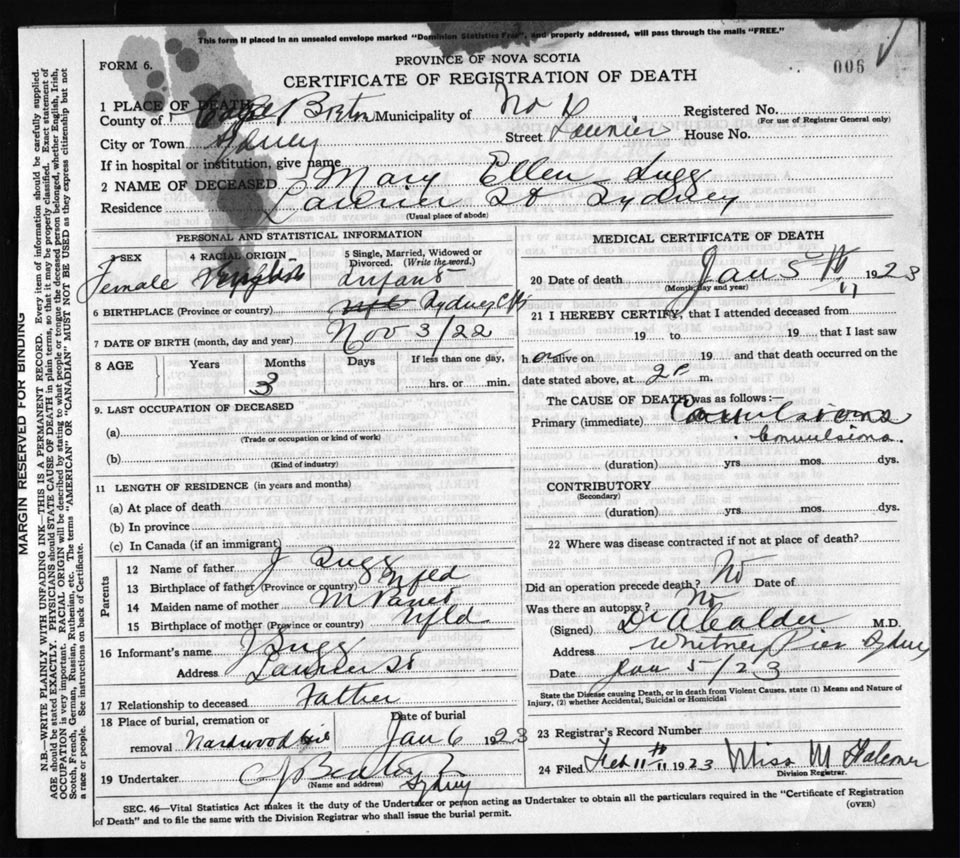 This form if placed in an unsealed envelope marked "Dominion Statistics Free", and properly addressed, will pass through the mails "FREE."
FORM 6.
PROVINCE OF NOVA SCOTIA
006
CERTIFICATE OF REGISTRATION OF DEATH
1 PLACE OF DEATH
County of Cape Breton Municipality of No 6 Registered No.
(For use of Registrar General only)
City or Town Sydney Street Laurier House No.
If in hospital or institution, give name
2 NAME OF DECEASED Mary Ellen Sugg
Residence Laurier St Sydney
(Usual place of abode)
PERSONAL AND STATISTICAL INFORMATION
3 SEX Female
4 RACIAL ORIGIN English
5 Single, Married, Widowed or Divorced. (Write the word.) infant
6 BIRTHPLACE (Province or country) Sydney CB
7 DATE OF BIRTH (month, day and year) Nov 3/22
8 AGE Years Months Days If less than one day,
3 hrs. or min.
9. LAST OCCUPATION OF DECEASED
(a)
(Trade or occupation or kind of work)
(b)
(Kind of industry)
11 LENGTH OF RESIDENCE (in years and months)
(a) At place of death
(b) In province
(c) In Canada (if an immigrant)
Parents
12 Name of father J Sugg
13 Birthplace of father (Province or country) Nfld
14 Maiden name of mother M
15 Birthplace of mother (Province or country) Nfld
16 Informant's name J Sugg
Address Laurier St
17 Relationship to deceased Father
18 Place of burial, cremation or Date of burial
removal Hardwood Hill Jan 6 1923
19 Undertaker
(Name and address) Sydney
MEDICAL CERTIFICATE OF DEATH
20 Date of death Jan 5th 1923
(Month, day and year)
21 I HEREBY CERTIFY, that I attended deceased from
19 to 19 that I last saw
h er alive on 19 and that death occurred on the
date stated above, at 2 P m.
The CAUSE OF DEATH was as follows:—
Primary (immediate) Convulsions
Convulsions
(duration) yrs. mos. dys.
CONTRIBUTORY
(Secondary)
(duration) yrs. mos. dys.
22 Where was disease contracted if not at place of death?
Did an operation precede death? No Date of
Was there an autopsy? No
(Signed) Dr A Calder M.D.
Address Whitney Pier Sydney
Date Jan 5/23
State the Disease causing Death, or in death from Violent Causes, state (1) Means and Nature of
Injury, (2) whether Accidental, Suicidal or Homicidal
23 Registrar's Record Number
24 Filed Feb 11th 1923 Miss M Falconer
Division Registrar.
SEC. 46—Vital Statistics Act makes it the duty of the Undertaker or person acting as Undertaker to obtain all the particulars required in the "Certificate of Registration
of Death" and to file the same with the Division Registrar who shall issue the burial permit.
(OVER)
MARGIN RESERVED FOR BINDING
N.B.—WRITE PLAINLY WITH UNFADING INK—THIS IS A PERMANENT RECORD. Every item of information should be carefully supplied.
AGE should be stated EXACTLY. PHYSICIANS should STATE CAUSE OF DEATH in plain terms, so that it may be properly classified. Exact statement of
OCCUPATION is very important. RACIAL ORIGIN will be described by stating to what people or tongue the deceased person belonged, whether English, Irish,
Scotch, French, German, Russian, Ruthenian, etc. The terms "AMERICAN" OR "CANADIAN" MUST NOT BE USED as they express citizenship but not
a race or people. See instructions on back of Certificate.